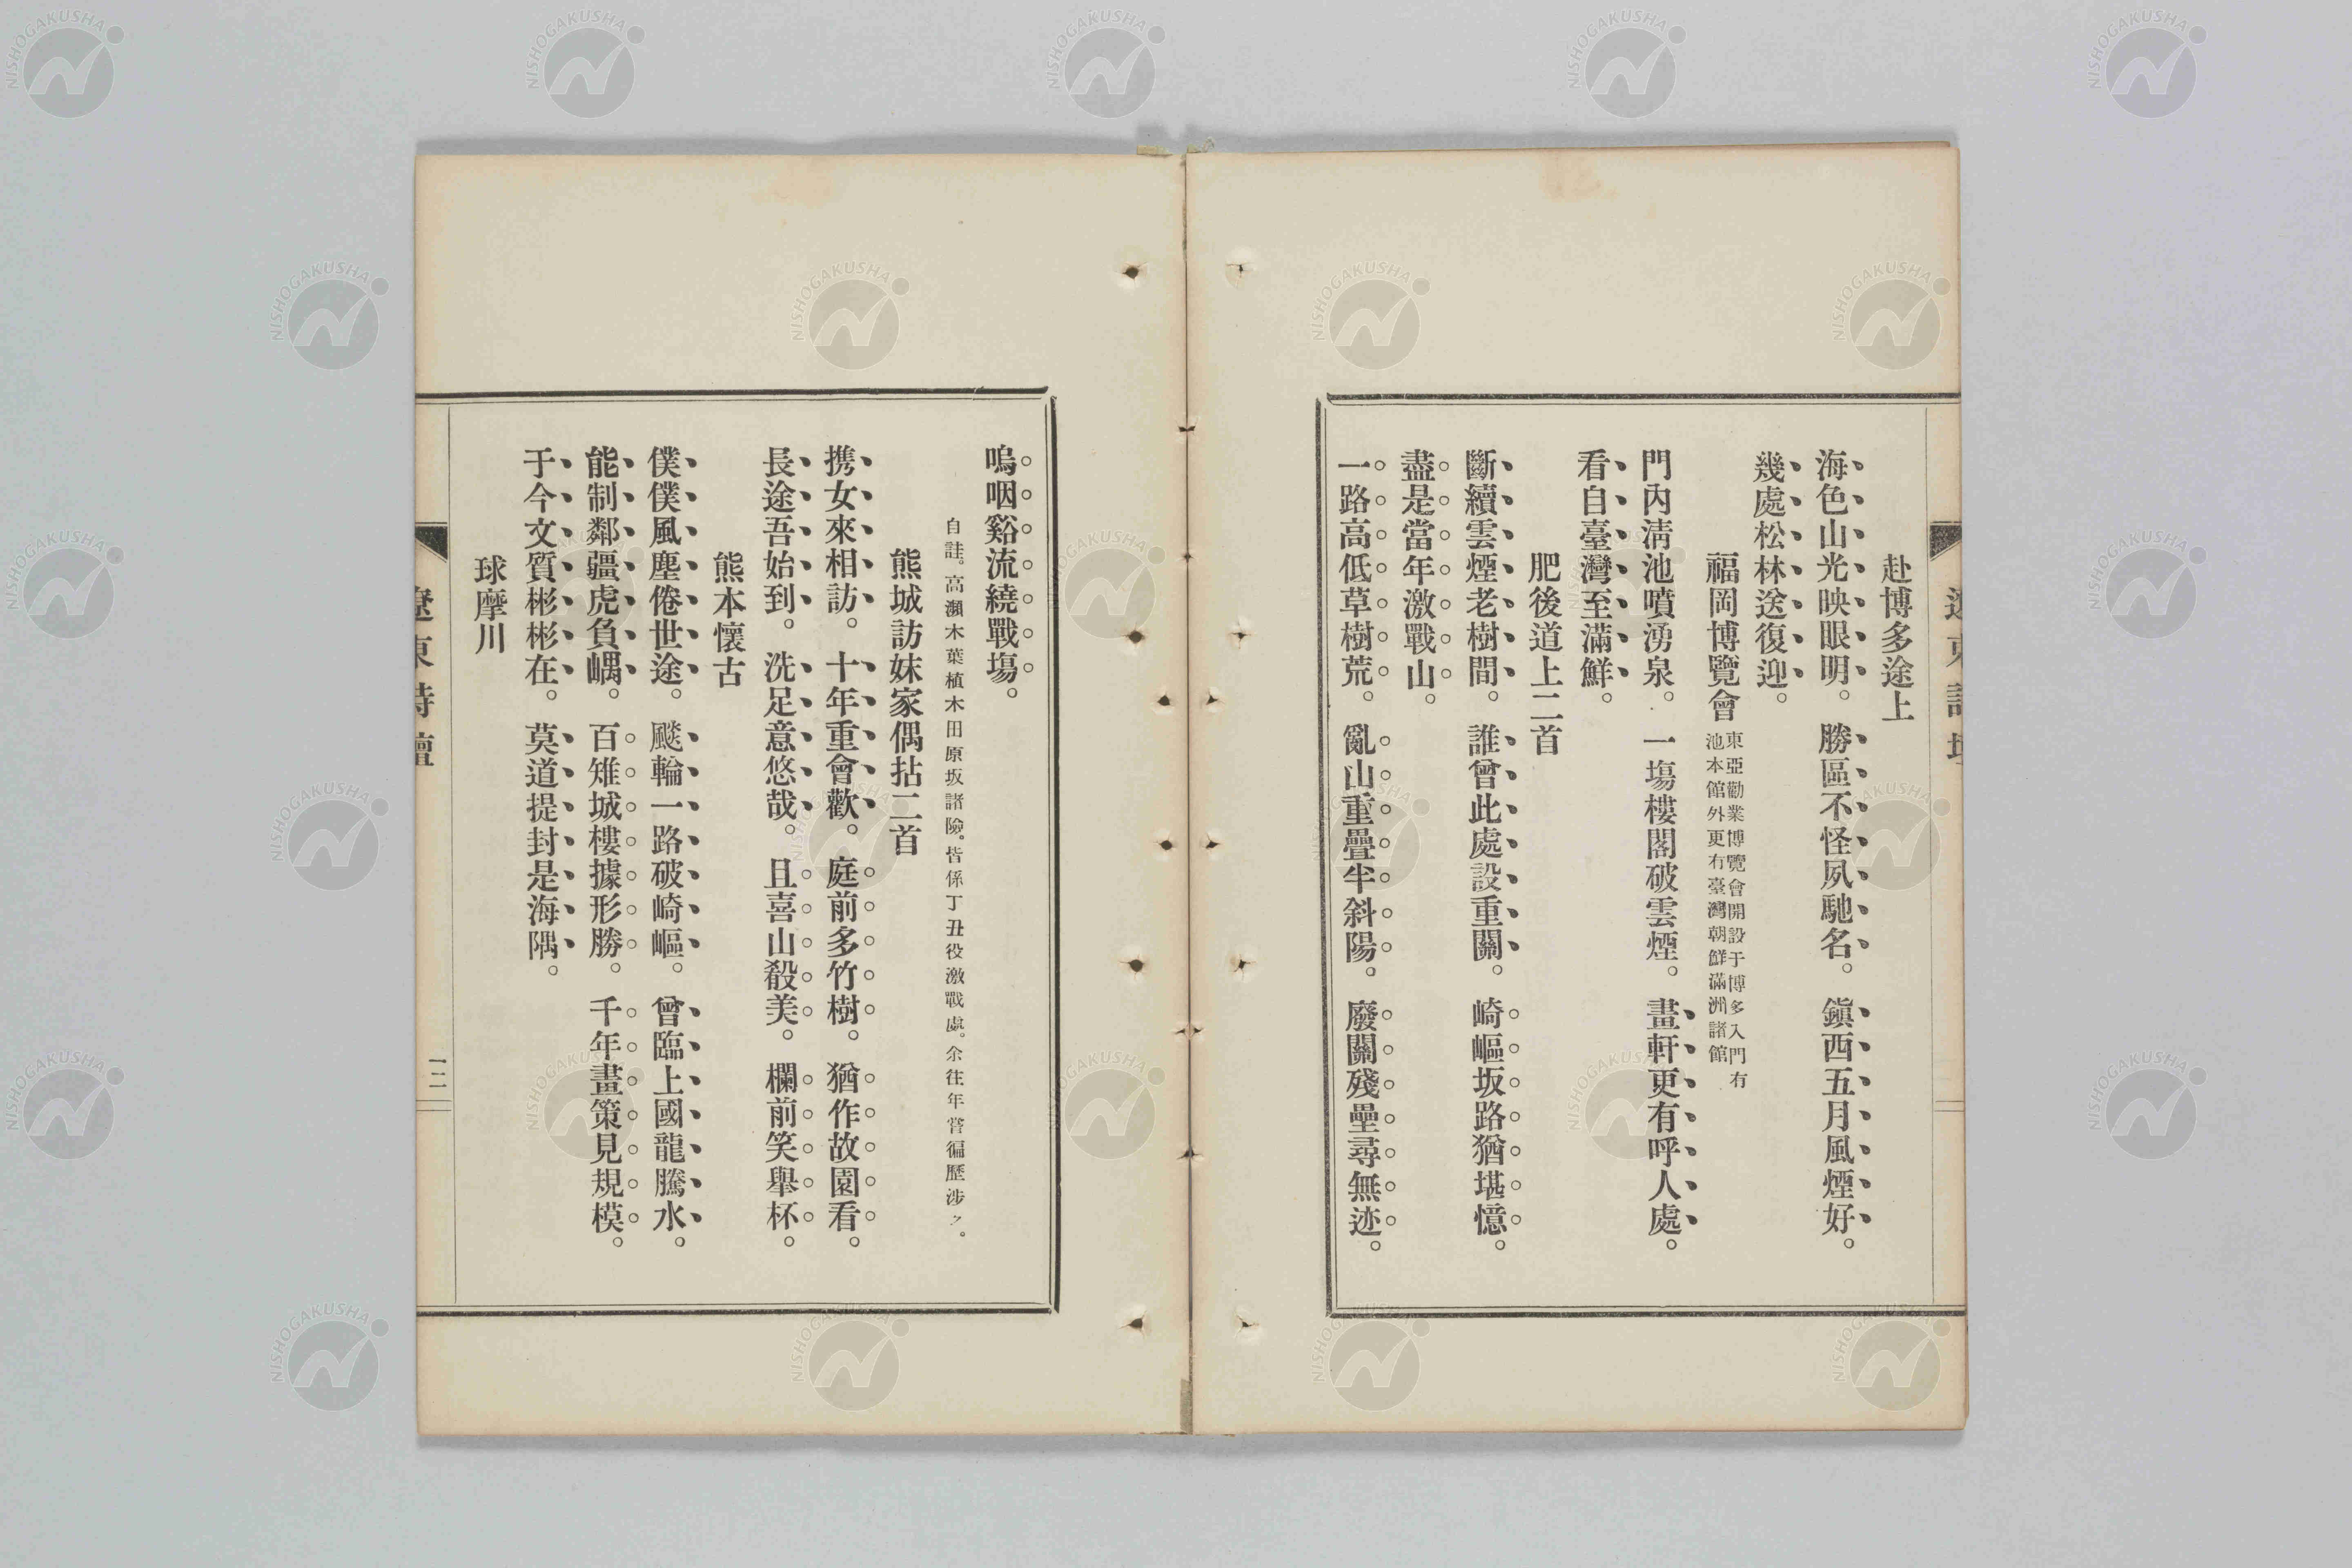 赴博多途上
海色山光映眼明。勝區不怪夙馳名。鎭西五月風煙好。
幾處松林送復迎。
福岡博覽會
東亞勸業博覽會開設于博多入門有
池本館外更有臺灣朝鮮滿洲諸館
門內淸池噴湧泉。一塲樓閣破雲煙。畫軒更有呼人處。
看自臺灣至滿鮮。
肥後道上二首
斷續雲煙老樹間。誰曾此處設重關。崎嶇坂路猶堪憶。
盡是當年激戰山。
一路高低草樹荒。亂山重疊半斜陽。廢關殘壘尋無迹。
嗚咽谿流繞戰塲。
自註。高瀨木葉植木田原坂諸險。皆係丁丑役激戰處。余往年嘗徧歷涉之。
熊城訪妹家偶拈二首
携女來相訪。十年重會歡。庭前多竹樹。猶作故園看。
長途吾始到。洗足意悠哉。且喜山殽美。欄前笑擧杯。
熊本懷古
僕僕風塵倦世途。飇輪一路破崎嶇。曾臨上國龍騰水。
能制鄰疆虎負嵎。百雉城樓據形勝。千年畫策見規模。
于今文質彬彬在。莫道提封是海隅。
球摩川
遼東詩壇
一二
NISHOGAKUSHA